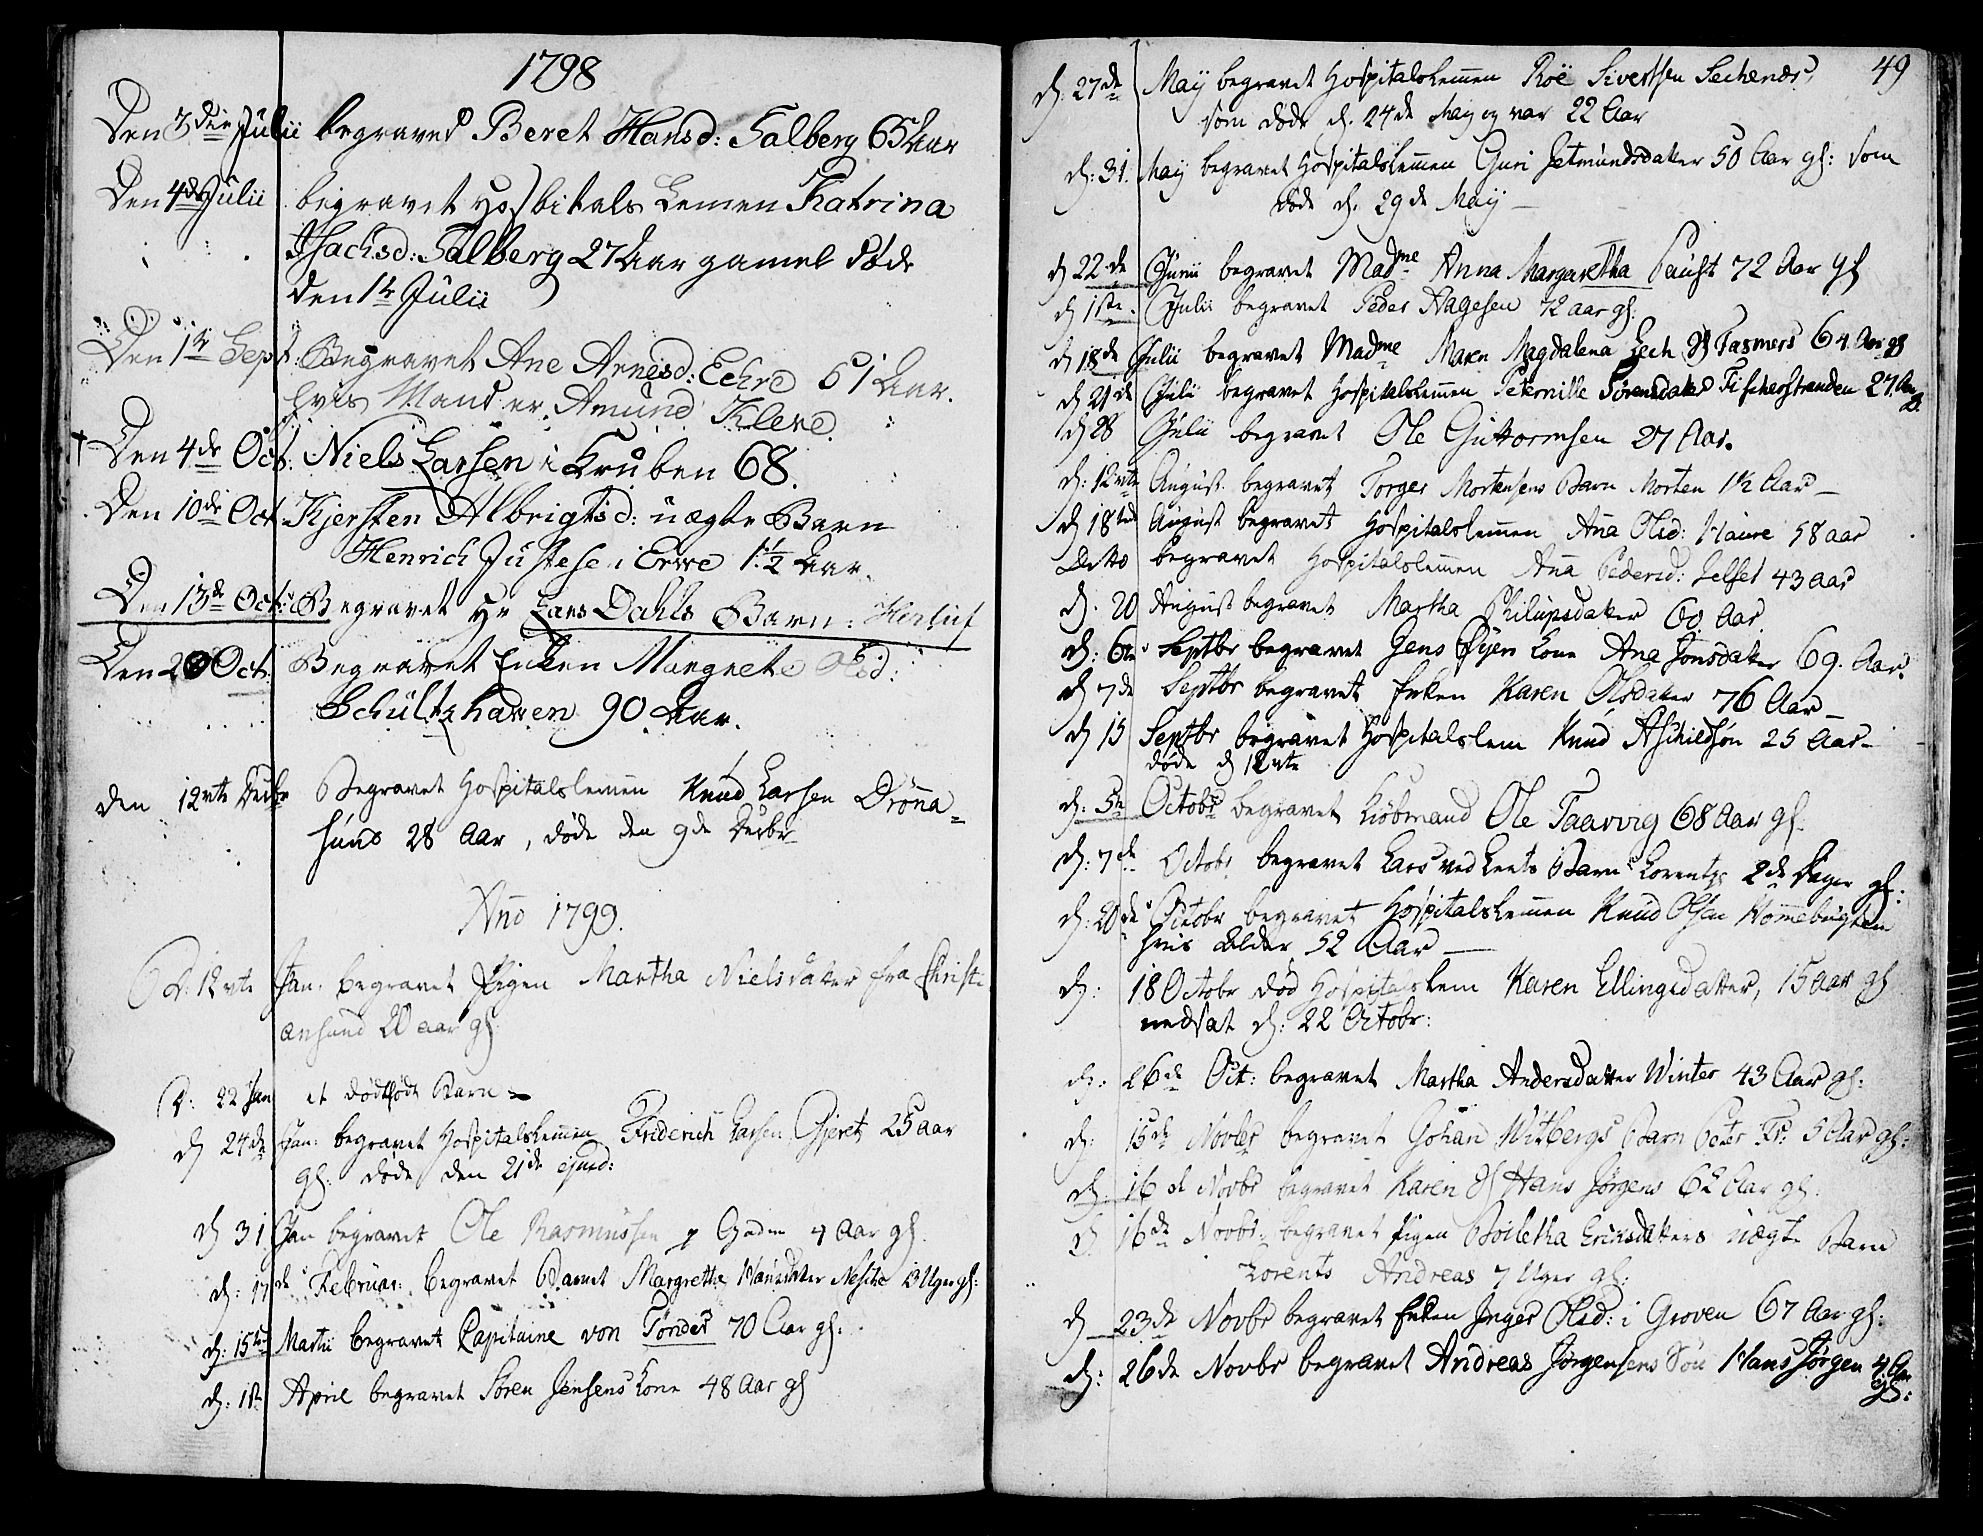 1798
Den 3die Julii begraved Beret Hansd: Falberg 65 Aar
Den 4de Julii begravet Hosbitals Lemen Katrina
Isachsd: Falberg 27 Aar gamel døde
den 1te Julii
Den 1te Sept: Begravet Ane Arnesd: Echre 61 Aar.
hvis Mand er Amund Kleve.
Den 4de Oct. Niels Larsen i Gruben 68.
Den 10de Oct. Kjersten Albrigtsd: uægte Barn
Henrich Justese i Erwe 1½ Aar.
Den 13de Oct: Begravet Hr Lars Dahls Barn: Herluf
Den 20 Oct. Begravet Enken Margrete Olsd:
Schultzhawen 90 Aar.
den 12vte Decbr Begravet Hospitalslemen Knud Larsen Drönna=
sund 28 Aar, døde den 9de Decbr
Ano 1799.
D: 12vte Jan: begravet Pigen Martha Nielsdater fra Christi
ansund 20 aar gl.
D: 22 Jan et dødfødt Barn
d 24de Jan: begravet Hospitalslemmen Friderich Larsen Gjeretz 25 aar
gl: døde den 21de ejusd:
d 31 Jan begravet Ole Rasmussen p Gaden 4 Aar gl.
d: 17de Februar: begravet Barnet Margrethe Hansdater 13 Uger gl:
d: 15te Martii begravet Capitaine von Tönder 70 Aar gl:
d: 1te April begravet Sören Jensens Kone 48 Aar gl
49
d. 27de May begravet Hospitalslemmen Roë Sivertsen Sechenes
som døde d. 24de May og var 22 Aar
d: 31. May begravet Hospitalslemmen Guri Jetmundsdater 50 Aar gl: som
døde d. 29de May
d 22de Junii begravet Madme Anna Margaretha Paust 72 Aar gl
d 1ste Julii begravet Peder Aagesen 72 aar gl.
d 18de Julii begravet Madme Maren Magdalena Zech Tasmers 64 Aar gl
d 21de Julii begravet Hospitalslemmen Peternille Sörensdater Fischerstranden 27 Aar
gl.
d 28 Julii begravet Ole Guttormsen 27 Aar.
d: 12vte August begravet Torger Mortensens Barn Morten 1½ Aar
d 18tend August begravet Hospitalslemmen Ana Olsd: Haure 58 aar
Ditto begravet Hospitalslemmen Ana Pedersd: Jelset 43 aar
d. 20 August begravet Martha Philipsdater 60 Aar
d: 6te Septbr begravet Jens Øyen Kone Ana Jonsdater 69. Aar.
d 7de Septbr begravet Enken Karen Olsdater 76 Aar
d 15 Septbr begravet Hospitalslem Knud Aschildsön 25 Aar
døde d 12vte
d: 5te Octobr begravet Kiöbmand Ole Taarvig 68 Aar gl.
d: 7de Octobr begravet Lars ved Leets Barn Lorentz 2de Dager gl:
d: 20de Octobr begravet Hospitalslemmen Knud Olsen Hommebugten
hvis Alder 52 Aar
d: 18 Octobr død Hospitalslem Karen Ellingsdatter, 15 aar gl
nedsat d: 22 Octobr:
d: 26de Oct: begravet Martha Andersdatter Winter 43 Aar gl:
d: 15de Novbr begravet Johan Witbergs Barn Peter Fr: 5 Aar gl:
d: 16de Novbr begravet Karen Hans Jørgens 62 Aar gl.
d 16de Novbr: begravet Pigen Boiletha Ericksdatters uægte Barn
Lorents Andreas 7 Uger gl:
d 23de Novbr begravet Enken Inger Olsd: i Groven 67 Aar gl:
d: 26de Novbr begravet Andreas Jørgensens Sön Hans Jørgen 4 Aar
gl: